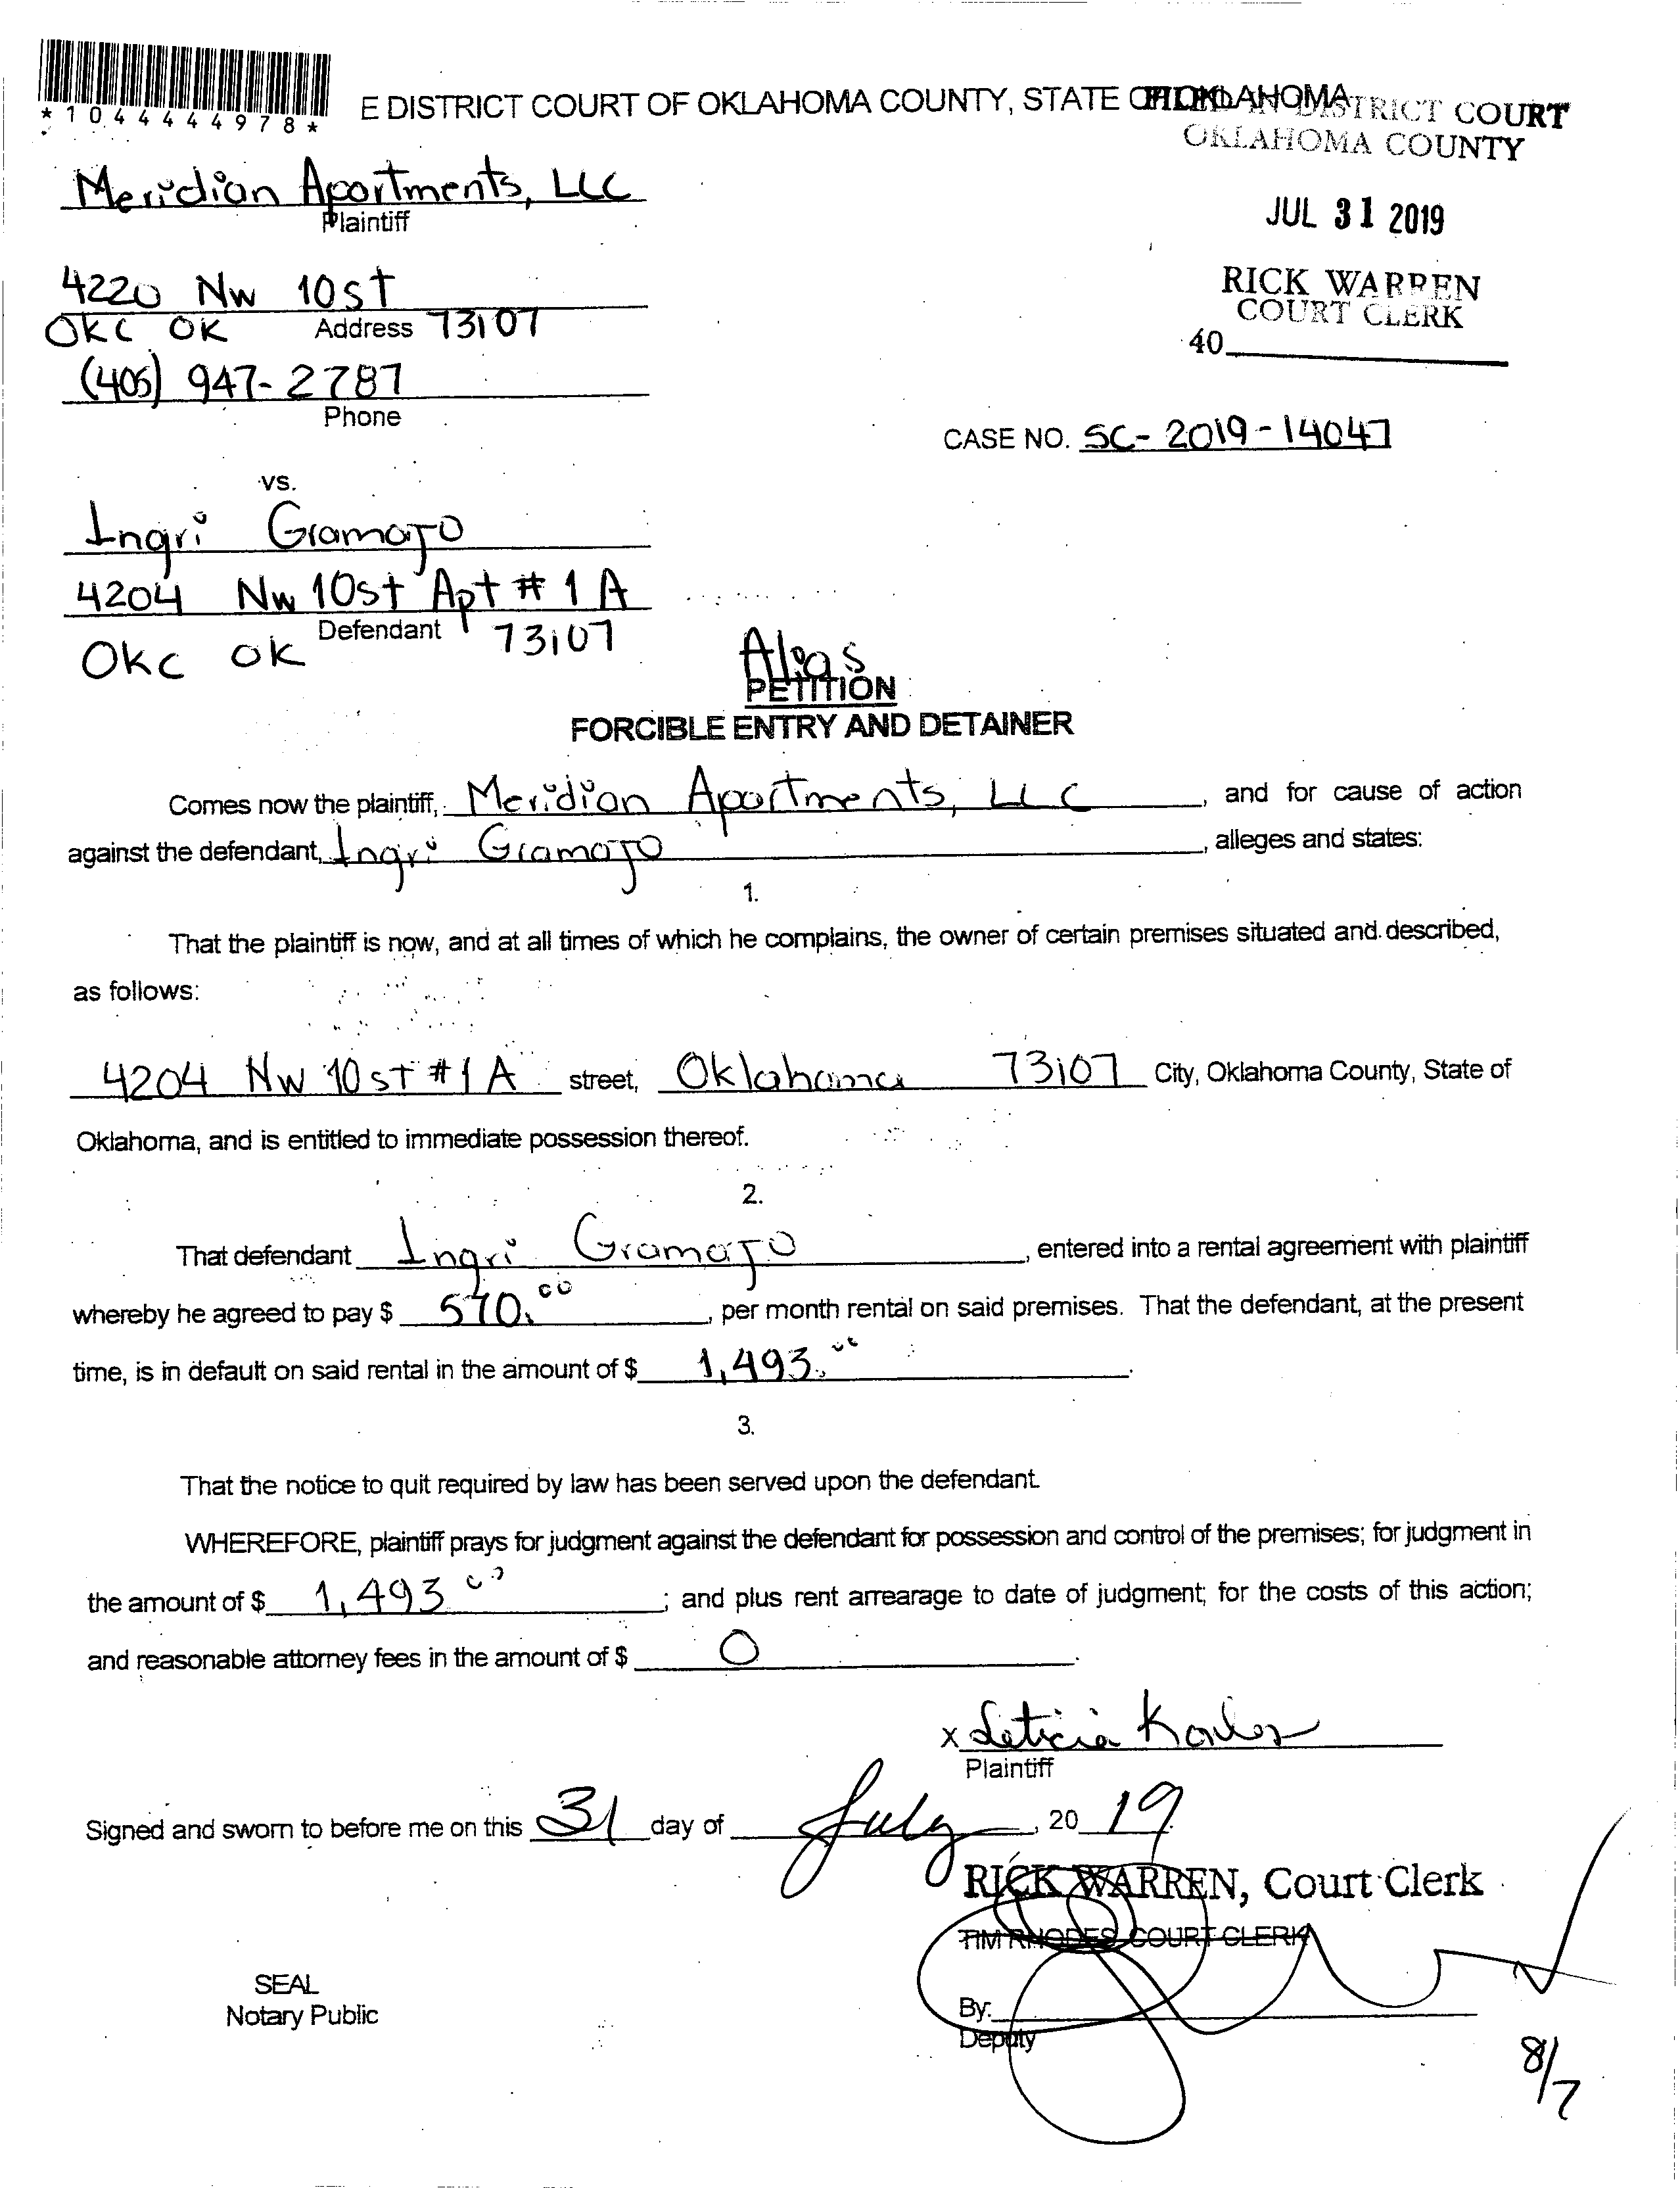 *1044444978*
E DISTRICT COURT OF OKLAHOMA COUNTY, STATE OF OKLAHOMA
FILED IN DISTRICT COURT
OKLAHOMA COUNTY
Meridian Apartments, LLC
Plaintiff
JUL 31 2019
4220 NW 10st
OKC OK Address 73107
RICK WARREN
COURT CLERK
40
(405) 947-2787
Phone
CASE NO. SC-2019-14047
vs.
Ingri Gramajo
4204 NW 10st Apt #1A
Defendant
OKC OK 73107
Alias
PETITION
FORCIBLE ENTRY AND DETAINER
Comes now the plaintiff, Meridian Apartments, LLC, and for cause of action
against the defendant, Ingri Gramajo, alleges and states:
1.
That the plaintiff is now, and at all times of which he complains, the owner of certain premises situated and described,
as follows:
4204 NW 10st #1A street, Oklahoma 73107 City, Oklahoma County, State of
Oklahoma, and is entitled to immediate possession thereof.
2.
That defendant Ingri Gramajo, entered into a rental agreement with plaintiff
whereby he agreed to pay $ 570.00, per month rental on said premises. That the defendant, at the present
time, is in default on said rental in the amount of $ 1,493.00.
3.
That the notice to quit required by law has been served upon the defendant.
WHEREFORE, plaintiff prays for judgment against the defendant for possession and control of the premises; for judgment in
the amount of $ 1,493 00; and plus rent arrearage to date of judgment; for the costs of this action;
and reasonable attorney fees in the amount of $ 0.
x Leticia
Plaintiff
Signed and sworn to before me on this 31 day of July, 20 19.
RICK WARREN, Court Clerk
TIM RHODES, COURT CLERK
SEAL
Notary Public
By:
Deputy
8/7